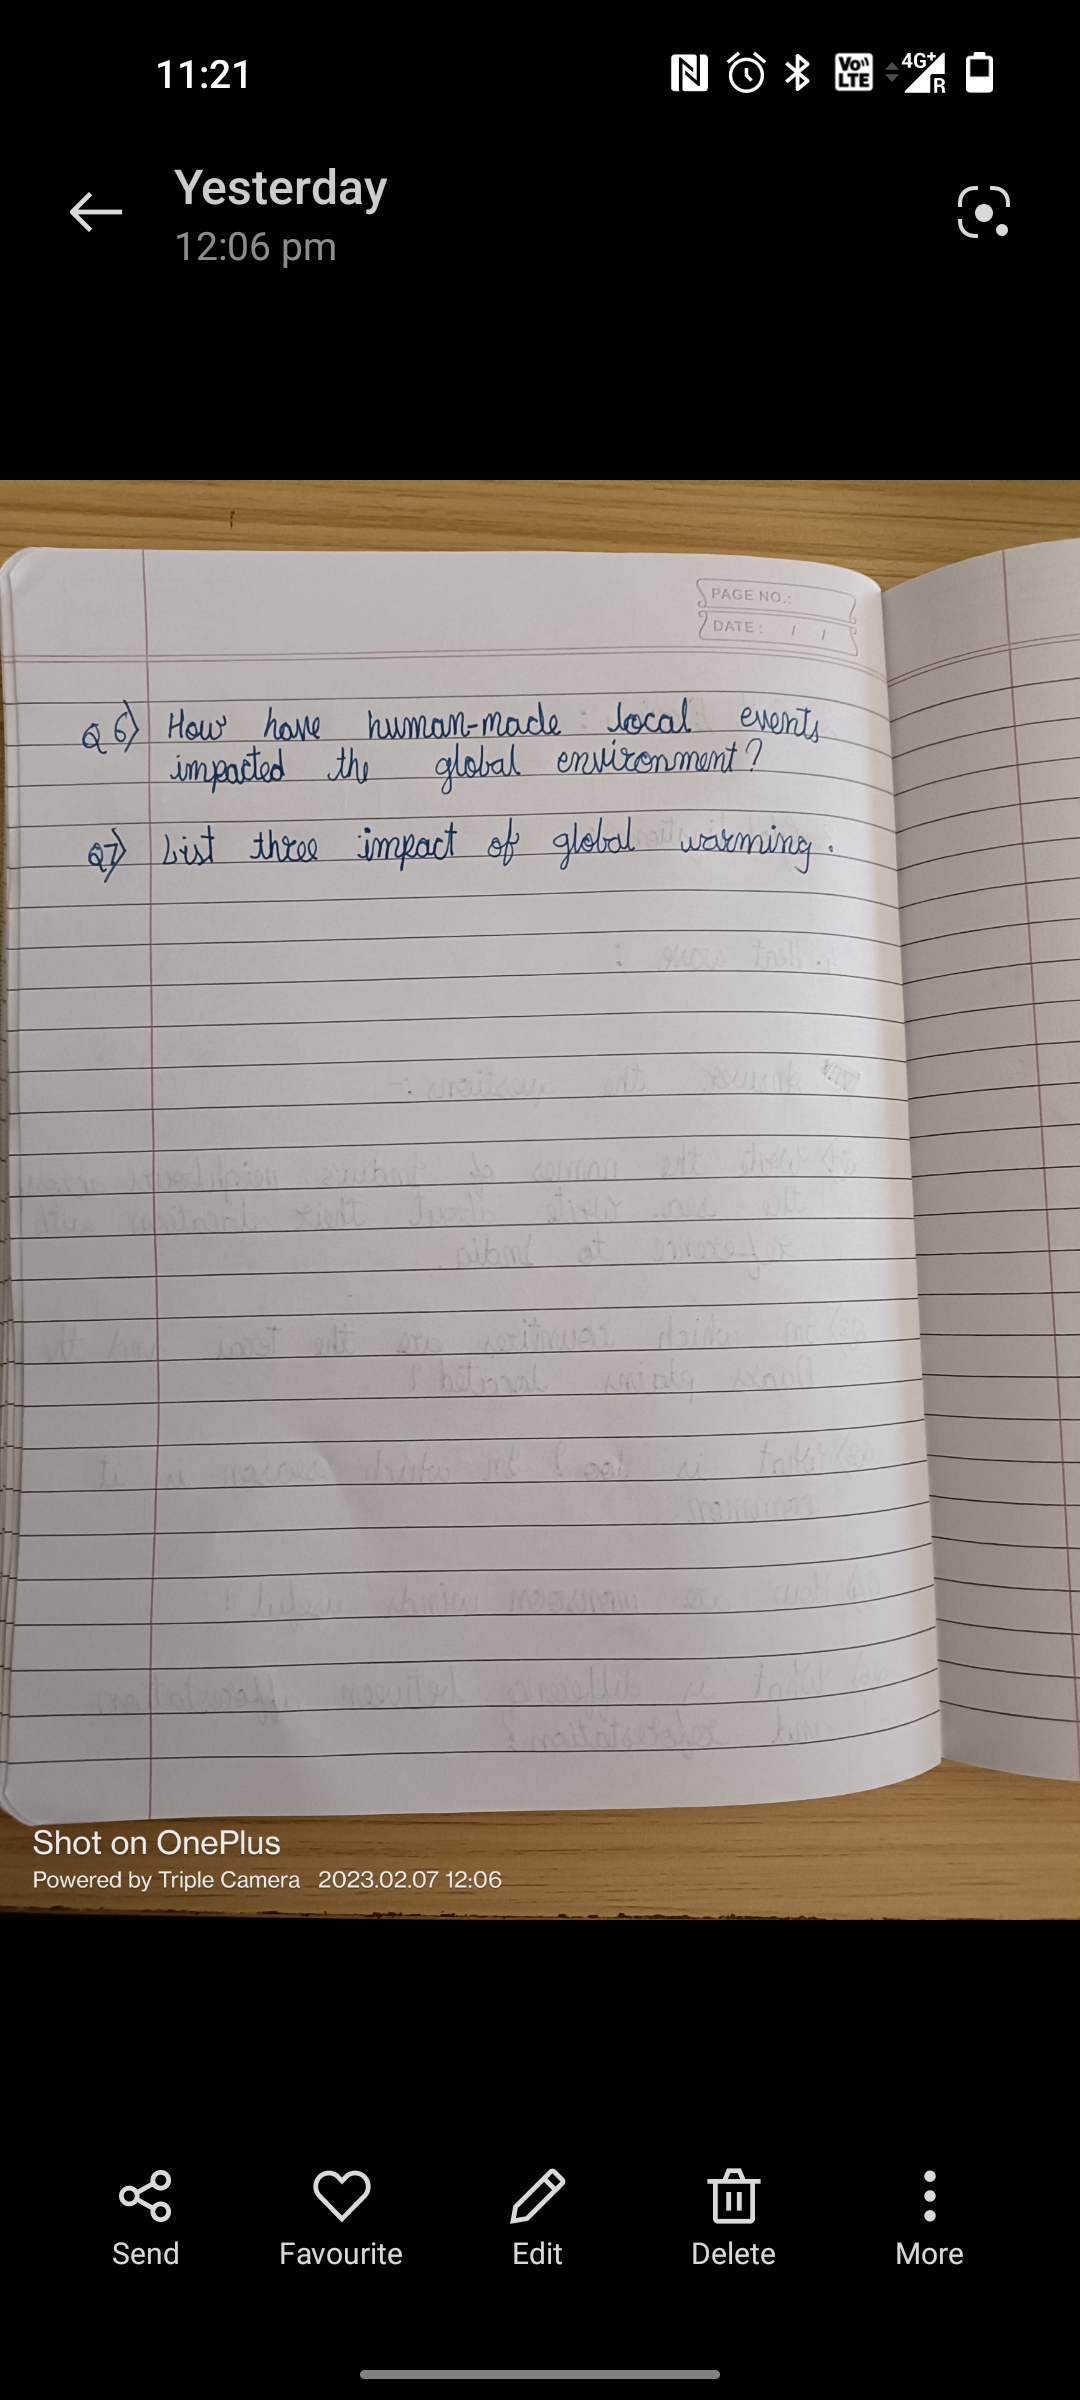 11:21
Vo LTE 4G+ R
Yesterday
12:06 pm
PAGE NO.:
DATE: / /
Q6) How have human-made local events
impacted the global environment?
Q7) List three impact of global warming.
Shot on OnePlus
Powered by Triple Camera 2023.02.07 12:06
Send Favourite Edit Delete More